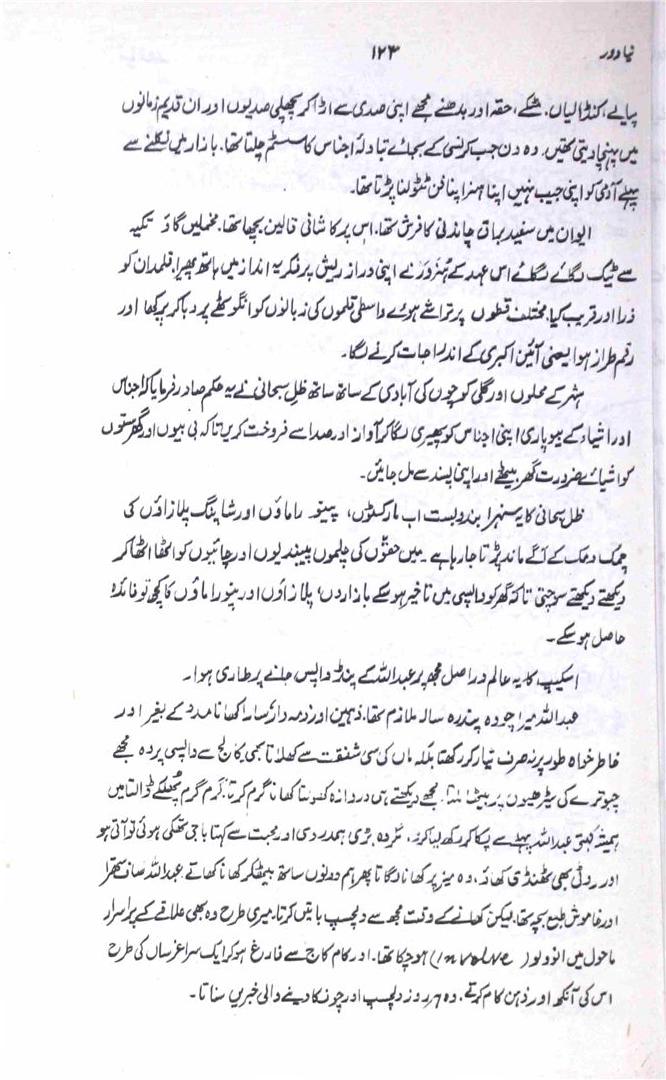 نیا دور
۱۲۳
پیالے، کنڈالیاں، مٹکے، حقہ اور بدھنے مجھے اپنی صدی سے اڑا کر پچھلی صدیوں اور ان قدیم زمانوں
میں پہنچا دیتی تھیں۔ وہ دن جب کرنسی کے بجائے تبادلۂ اجناس کا سسٹم چلتا تھا۔ بازار میں نکلنے سے
پہلے آدمی کو اپنی جیب نہیں اپنا ہنر اپنا فن ٹٹولنا پڑتا تھا۔
ایوان میں سفید براق چاندنی کا فرش تھا، اس پر کاشانی قالین بچھا تھا۔ مخملیں گاؤ تکیہ
سے ٹیک لگائے لگائے اس عہد کے ہُنرور نے اپنی دراز ریش پر فکریہ انداز میں ہاتھ پھیرا، قلمدان کو
ذرا اور قریب کیا، مختلف قطوں پر تراشے ہوئے واسطی قلموں کی زبانوں کو انگوٹھے پر دبا کر پرکھا اور
رقم طراز ہوا یعنی آئین اکبری کے اندراجات کرنے لگا۔
شہر کے محلوں اور گلی کوچوں کی آبادی کے ساتھ ساتھ ظلِ سبحانی نے یہ حکم صادر فرمایا کہ اجناس
اور اشیاء کے بیوپاری اپنی اجناس کو پھیری لگا کر آواز اور صدا سے فروخت کریں تاکہ بی بیوں اور گھرستوں
کو اشیائے ضرورت گھر بیٹھے اور اپنی پسند سے مل جائیں۔
ظل سبحانی کا یہ سنہرا بندوبست اب مارکٹوں، پینو راماؤں اور شاپنگ پلازاؤں کی
چمک دمک کے آگے ماند پڑتا جا رہا ہے۔ میں حقوں کی چلموں پیندیوں اور چائیوں کو اٹھا اٹھا کر
دیکھتے دیکھتے سوچتی تاکہ گھر کو واپسی میں تاخیر ہو سکے بازاروں، پلازاؤں اور پنوراماؤں کا کچھ تو فائدہ
حاصل ہو سکے۔
اسکیپ کا یہ عالم دراصل مجھ پر عبداللہ کے پنڈ واپس جانے پر طاری ہوا۔
عبداللہ میرا چودہ پندرہ سالہ ملازم تھا، ذہین اور ذمہ دار، سارا کھانا مدد کے بغیر اور
خاطر خواہ طور پر نہ صرف تیار کر رکھتا بلکہ ماں کی سی شفقت سے کھلاتا بھی، کالج سے واپسی پر وہ مجھے
چبوترے کی سیڑھیوں پر بیٹھا ملتا، مجھے دیکھتے ہی دروازہ کھولتا کھانا گرم کرتا، گرم گرم پھلکے ڈالتا میں
ہمیشہ کہتی عبداللہ پہلے سے پکا کر رکھ لیا کرو، مگر وہ بڑی ہمدردی اور محبت سے کہتا باجی تھکی ہوئی تو آتی ہو
اور روٹی بھی ٹھنڈی کھاؤ، وہ میز پر کھانا لگاتا پھر ہم دونوں ساتھ بیٹھ کر کھانا کھاتے۔ عبداللہ صاف ستھرا
اور خاموش طبع بچہ تھا، لیکن کھانے کے وقت مجھ سے دلچسپ باتیں کرتا، میری طرح وہ بھی علاقے کے پراسرار
ماحول میں انوولو (Involve) ہو چکا تھا۔ اور کام کاج سے فارغ ہو کر ایک سراغرساں کی طرح
اس کی آنکھ اور ذہن کام کرتے، وہ ہر روز دلچسپ اور چونکا دینے والی خبریں سناتا۔